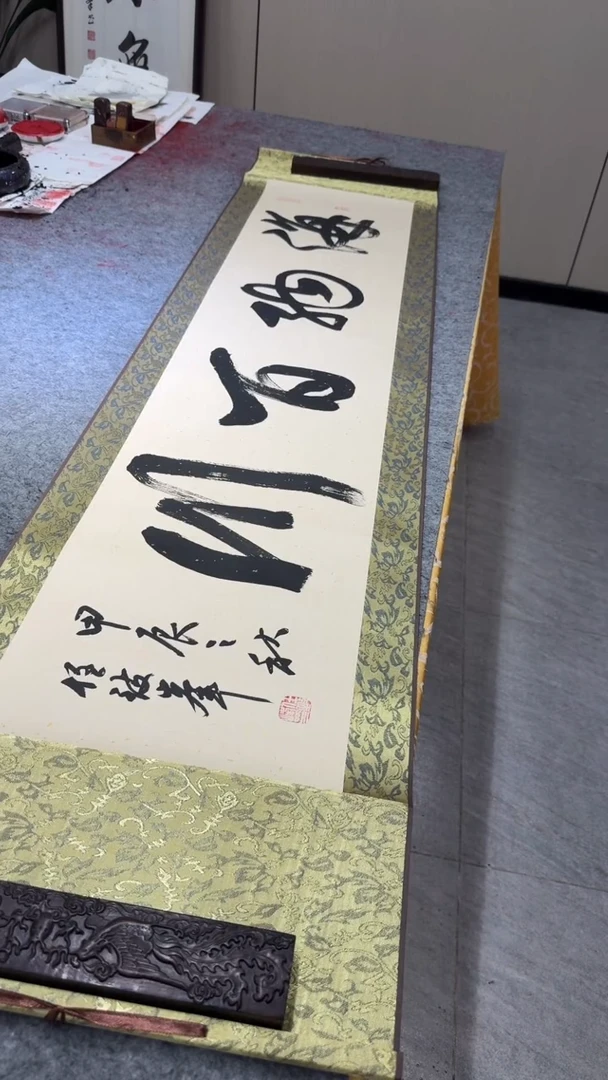 海纳百川
甲辰之秋
任 峯